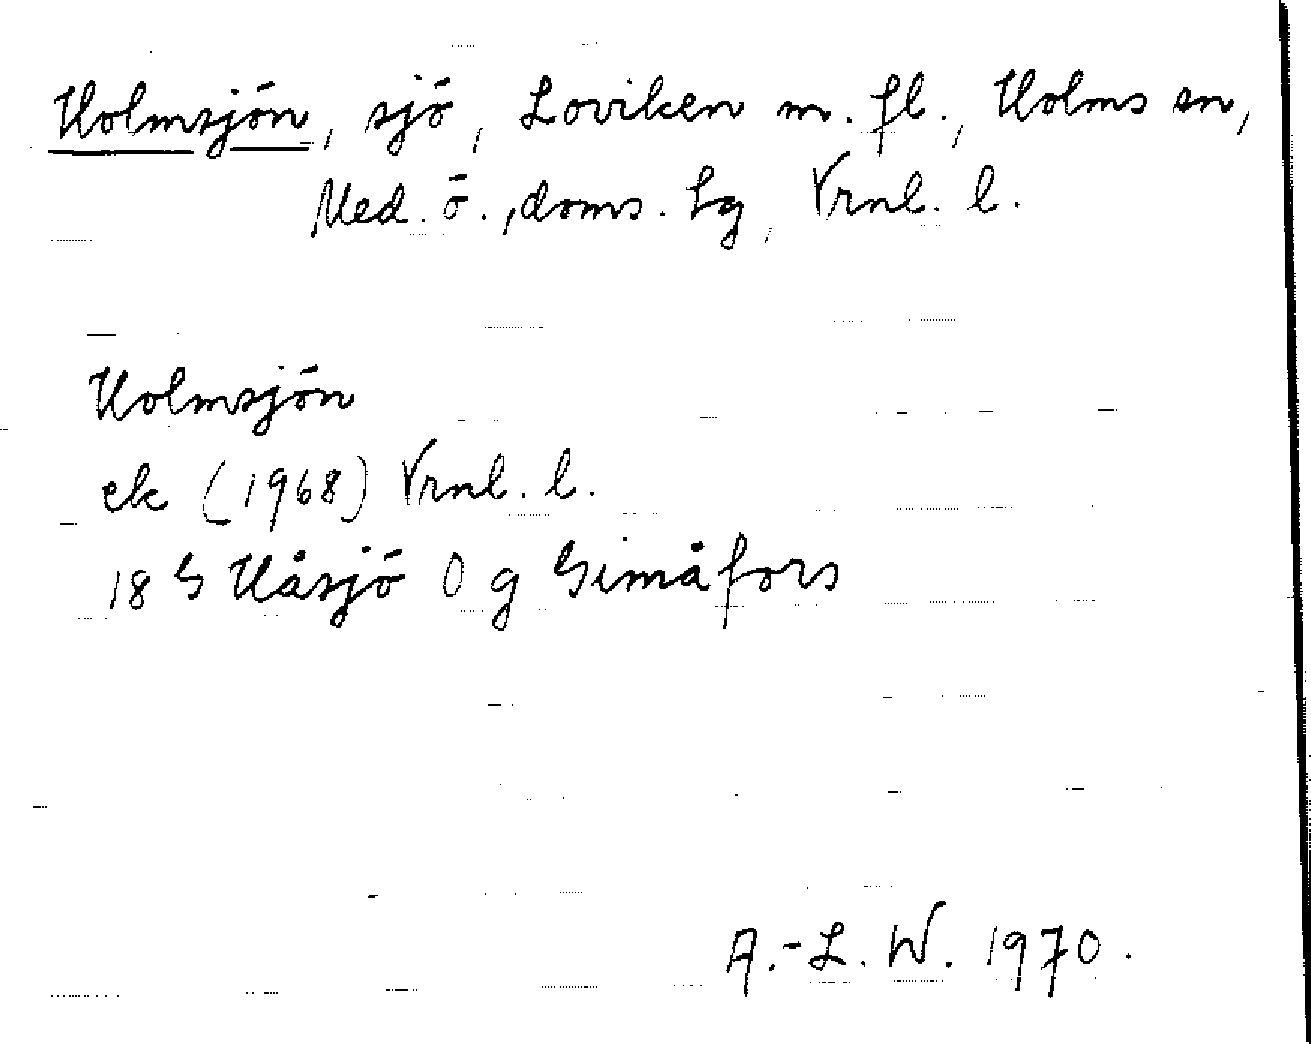 Holmsjön, sjö, Loviken m. fl., Holms sn,
Med. ö., doms. hg, Vrnl. l.
Holmsjön
ek (1968) Vrnl. l.
18 G Håsjö 0 g Gimåfors
A.-L. W. 1970.